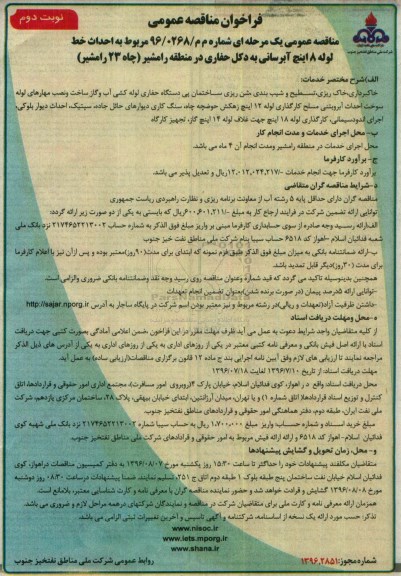 نوبت دوم
فراخوان مناقصه عمومی
مناقصه عمومی یک مرحله ای شماره م م/۹۶/۰۲۶۸ مربوط به احداث خط
لوله ۸ اینچ آبرسانی به دکل حفاری در منطقه رامشیر (چاه ۲۳ رامشیر)
الف)شرح مختصر خدمات:
خاکبرداری،خاک ریزی،تسطیح و شیب بندی شن ریزی ساختمان پی دستگاه حفاری لوله کشی آب وگاز ساخت ونصب مهارهای لوله
سوخت احداث آبروبتنی مسلح کارگذاری لوله ۱۲ اینچ زهکش حوضچه چاه، سنگ کاری دیوارهای حائل جاده، سپتیک، احداث دیوار بلوکی،
اجرای اندودسیمانی، کارگذاری لوله ۱۸ اینچ جهت غلاف لوله ۱۴ اینچ گاز، تجهیز کارگاه
ب- محل اجرای خدمات و مدت انجام کار
محل اجرای خدمات در منطقه رامشیر ومدت انجام آن ۴ ماه می باشد.
ج- برآورد کارفرما
برآورد کارفرما جهت انجام خدمات ۱۲،۰۱۲،۰۲۴،۲۱۷/۰ریال و تعدیل پذیر می باشد.
د-شرایط مناقصه گران متقاضی
مناقصه گران دارای حداقل پایه ۵ رشته آب از معاونت برنامه ریزی و نظارت راهبردی ریاست جمهوری
توانایی ارائه تضمین شرکت در فرایند ارجاع کار به مبلغ ۶۰۰،۶۰۱،۲۱۱/۰ریال که بایستی به یکی از دو صورت زیر ارائه گردد:
الف)ارائه رسید وجه صادره از سوی حسابداری کارفرما مبنی بر واریز مبلغ فوق الذکر به شماره حساب ۲۱۷۴۶۵۲۲۱۳۰۰۲ نزد بانک ملی
شعبه فدائیان اسلام -اهواز کد ۶۵۱۸ حساب سیبا بنام شرکت ملی مناطق نفت خیز جنوب
ب-ارائه ضمانتنامه بانکی به میزان مبلغ فوق الذکر طبق فرم نمونه که ابتدای برای مدت(۹۰روز)معتبر بوده و پس ازآن نیز با اعلام کارفرما
برای مدت (۹۰روز)دیگر قابل تمدید باشد.
همچنین بدینوسیله تاکید می گردد که قید شماره وعنوان مناقصه روی رسید وجه نقد وضمانتنامه بانکی ضروری والزامی است.
-توانایی ارائه ۵درصد پیمان (در صورت برنده شدن)بعنوان تضمین انجام تعهدات
-داشتن ظرفیت آزاد(تعهدات و ریالی)در رشته مربوط و نیز معتبر بودن اسم شرکت در پایگاه ساجار به آدرس http://sajar.mporg.ir
ه-محل ومهلت دریافت اسناد
از کلیه متقاضیان واجد شرایط دعوت به عمل می آید ظرف مهلت مقرر در این فراخوان ،ضمن اعلامی آمادگی بصورت کتبی جهت دریافت
اسناد با ارائه اصل فیش بانکی و معرفی نامه کتبی معتبر در یکی از روزهای اداری به یکی از آدرس های ذیل الذکر
مراجعه نمایند تا ارزیابی های لازم وفق آیین نامه اجرایی بند ج ماده ۱۲ قانون برگزاری مناقصات(ارزیابی ساده) به عمل آید.
مهلت دریافت اسناد: از تاریخ ۱۳۹۶/۷/۱۰ لغایت ۱۳۹۶/۰۷/۱۸
محل دریافت اسناد: واقع در اهواز، کوی فدائیان اسلام، خیابان پارک ۲(روبروی امور مسافرت)، مجتمع اداری امور حقوقی و قراردادها، اتاق
کنترل و توزیع اسناد قراردادها( اتاق شماره ۱) و یا تهران، میدان آرژانتین، ابتدای خیابان بیهقی، پلاک ۲۸، ساختمان مرکزی یازدهم، شرکت
ملی نفت ایران، طبقه دوم، دفتر هماهنگی امور حقوقی و قراردادهای مناطق نفتخیز جنوب.
مبلغ خرید اسناد و شماره حساب: واریز مبلغ ۱،۷۰۰،۰۰۰ ریال به حساب سیبا شماره ۲۱۷۴۶۵۲۲۱۳۰۰۲ نزد بانک ملی شعبه کوی
فدائیان اسلام- اهواز کد ۶۵۱۸ و ارائه ارائه فیش مربوط به امور حقوقی و قراردادهای شرکت ملی مناطق نفتخیز جنوب.
و- محل، زمان تحویل و گشایش پیشنهادها
متقاضیان مکلفند پیشنهادات خود را حداکثر تا ساعت ۱۵:۳۰ روز یکشنبه مورخ ۱۳۹۶/۰۸/۰۷ به دفتر کمیسیون مناقصات دراهواز، کوی
فدائیان اسلام خیابان نفت ساختمان پنج طبقه بلوک ۱ طبقه دوم اتاق ح ۲۵۱، تسلیم نمایند. ضمنا پیشنهادات درساعت ۰۸:۳۰ روز دوشنبه
مورخ ۱۳۹۶/۰۸/۰۸ گشایش و قرائت خواهد شد و حضور نماینده مناقصه گران با معرفی نامه و کارت شناسایی معتبر، بلامانع است.
همزمان ارائه معرفی نامه و کارت ملی برای متقاضیان شرکت در مناقصه و نمایندگان شرکتهای درهمه مراحل لازم و ضروری می باشد.
تذکر: حسب مورد ارائه یک نسخه از اساسنامه، شرکتنامه و آگهی تاسیس و آخرین تغییرات ثبتی الزامی می باشد.
www.nisoc.ir
www.iets.mporg.ir
www.shana.ir
شماره مجوز: ۱۳۹۶.۲۸۵۱
روابط عمومی شرکت ملی مناطق نفتخیز جنوب